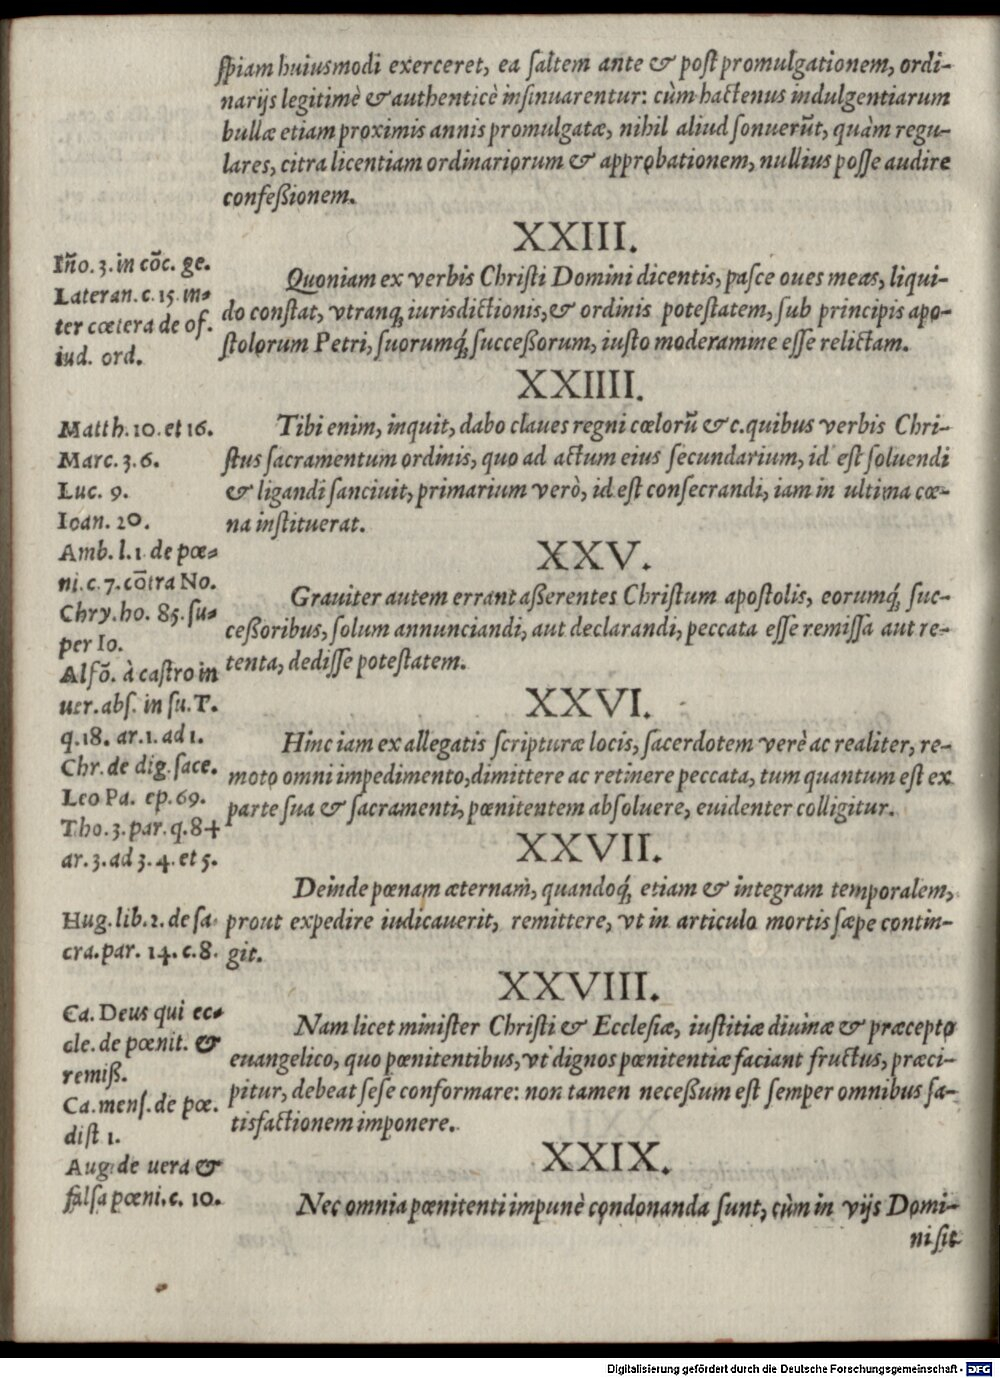 ſpiam huiusmodi exerceret, ea ſaltem ante & poſt promulgationem, ordi-
narijs legitimè & authenticè inſinuarentur: cùm hactenus indulgentiarum
bullæ etiam proximis annis promulgatæ, nihil aliud ſonuerūt, quàm regu-
lares, citra licentiam ordinariorum & approbationem, nullius poſſe audire
confeßionem.
XXIII.
Iño. 3. in cōc. ge.
Lateran. c. 15. in-
ter cœtera de of.
iud. ord.
Quoniam ex verbis Chriſti Domini dicentis, paſce oues meas, liqui-
do conſtat, vtranq, iurisdictionis, & ordinis poteſtatem, ſub principis apo-
ſtolorum Petri, ſuorumq́, ſucceßorum, iuſto moderamine eſſe relictam.
XXIIII.
Matth. 10. et 16.
Marc. 3. 6.
Luc. 9.
Ioan. 20.
Tibi enim, inquit, dabo claues regni cœlorū & c. quibus verbis Chri-
ſtus ſacramentum ordinis, quo ad actum eius ſecundarium, id eſt ſoluendi
& ligandi ſanciuit, primarium verò, id eſt conſecrandi, iam in ultima cœ-
na inſtituerat.
XXV.
Amb. l. 1. de pœ-
ni. c. 7. cōtra No.
Chry. ho. 85. ſu-
per Io.
Alfō. à caſtro in
uer. abſ. in ſu. T.
q. 18. ar. 1. ad 1.
Chr. de dig. ſace.
Leo Pa. ep. 69.
Tho. 3. par. q. 84
ar. 3. ad 3. 4. et 5.
Grauiter autem errant aßerentes Chriſtum apoſtolis, eorumq́, ſuc-
ceßoribus, ſolum annunciandi, aut declarandi, peccata eſſe remiſſa aut re-
tenta, dediſſe poteſtatem.
XXVI.
Hinc iam ex allegatis ſcripturæ locis, ſacerdotem verè ac realiter, re-
moto omni impedimento, dimittere ac retinere peccata, tum quantum eſt ex
parte ſua & ſacramenti, pœnitentem abſoluere, euidenter colligitur.
XXVII.
Hug. lib. 2. de ſa-
cra. par. 14. c. 8.
Deinde pœnam æternam, quandoq́, etiam & integram temporalem,
prout expedire iudicauerit, remittere, vt in articulo mortis ſæpe contin-
git.
XXVIII.
Ca. Deus qui ec-
cle. de pœnit. &
remiß.
Ca. menſ. de pœ.
diſt 1.
Aug. de uera &
falſa pœni. c. 10.
Nam licet miniſter Chriſti & Eccleſiæ, iuſtitiæ diuinæ & præcepto
euangelico, quo pœnitentibus, vt dignos pœnitentiæ faciant fructus, præci-
pitur, debeat ſeſe conformare: non tamen neceßum eſt ſemper omnibus ſa-
tisfactionem imponere.
XXIX.
Nec omnia pœnitenti impunè condonanda ſunt, cùm in vijs Domi-
ni ſit
Digitalisierung gefördert durch die Deutsche Forschungsgemeinschaft - DFG